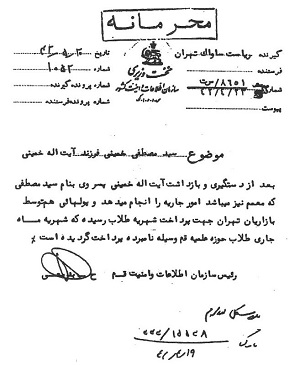 محرمانه
گیرنده ریاست ساواک تهران
فرستنده
شماره
پیوست
نخست وزیری
سازمان اطلاعات و امنیت کشور
تاریخ
شماره ۱۰۵۲
شماره پرونده گیرنده
شماره پرونده فرستنده
موضوع سید مصطفی خمینی فرزند آیت اله خمینی
بعد از دستگیری و بازداشت آیت اله خمینی پسر وی بنام سید مصطفی
که معمم نیز میباشد امور جاریه را انجام میدهد و پولهائی هم توسط
بازاریان تهران جهت پرداخت شهریه طلاب رسیده که شهریه ماه
جاری طلاب حوزه علمیه قم وسیله نامبرده پرداخت گردیده است
رئیس سازمان اطلاعات وامنیت قم